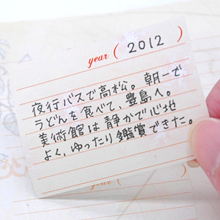 year ( 2012 )
夜行バスで高松。朝一で
うどんを食べて、豊島へ。
美術館は静かで心地
よく、ゆったり鑑賞できた。
year (